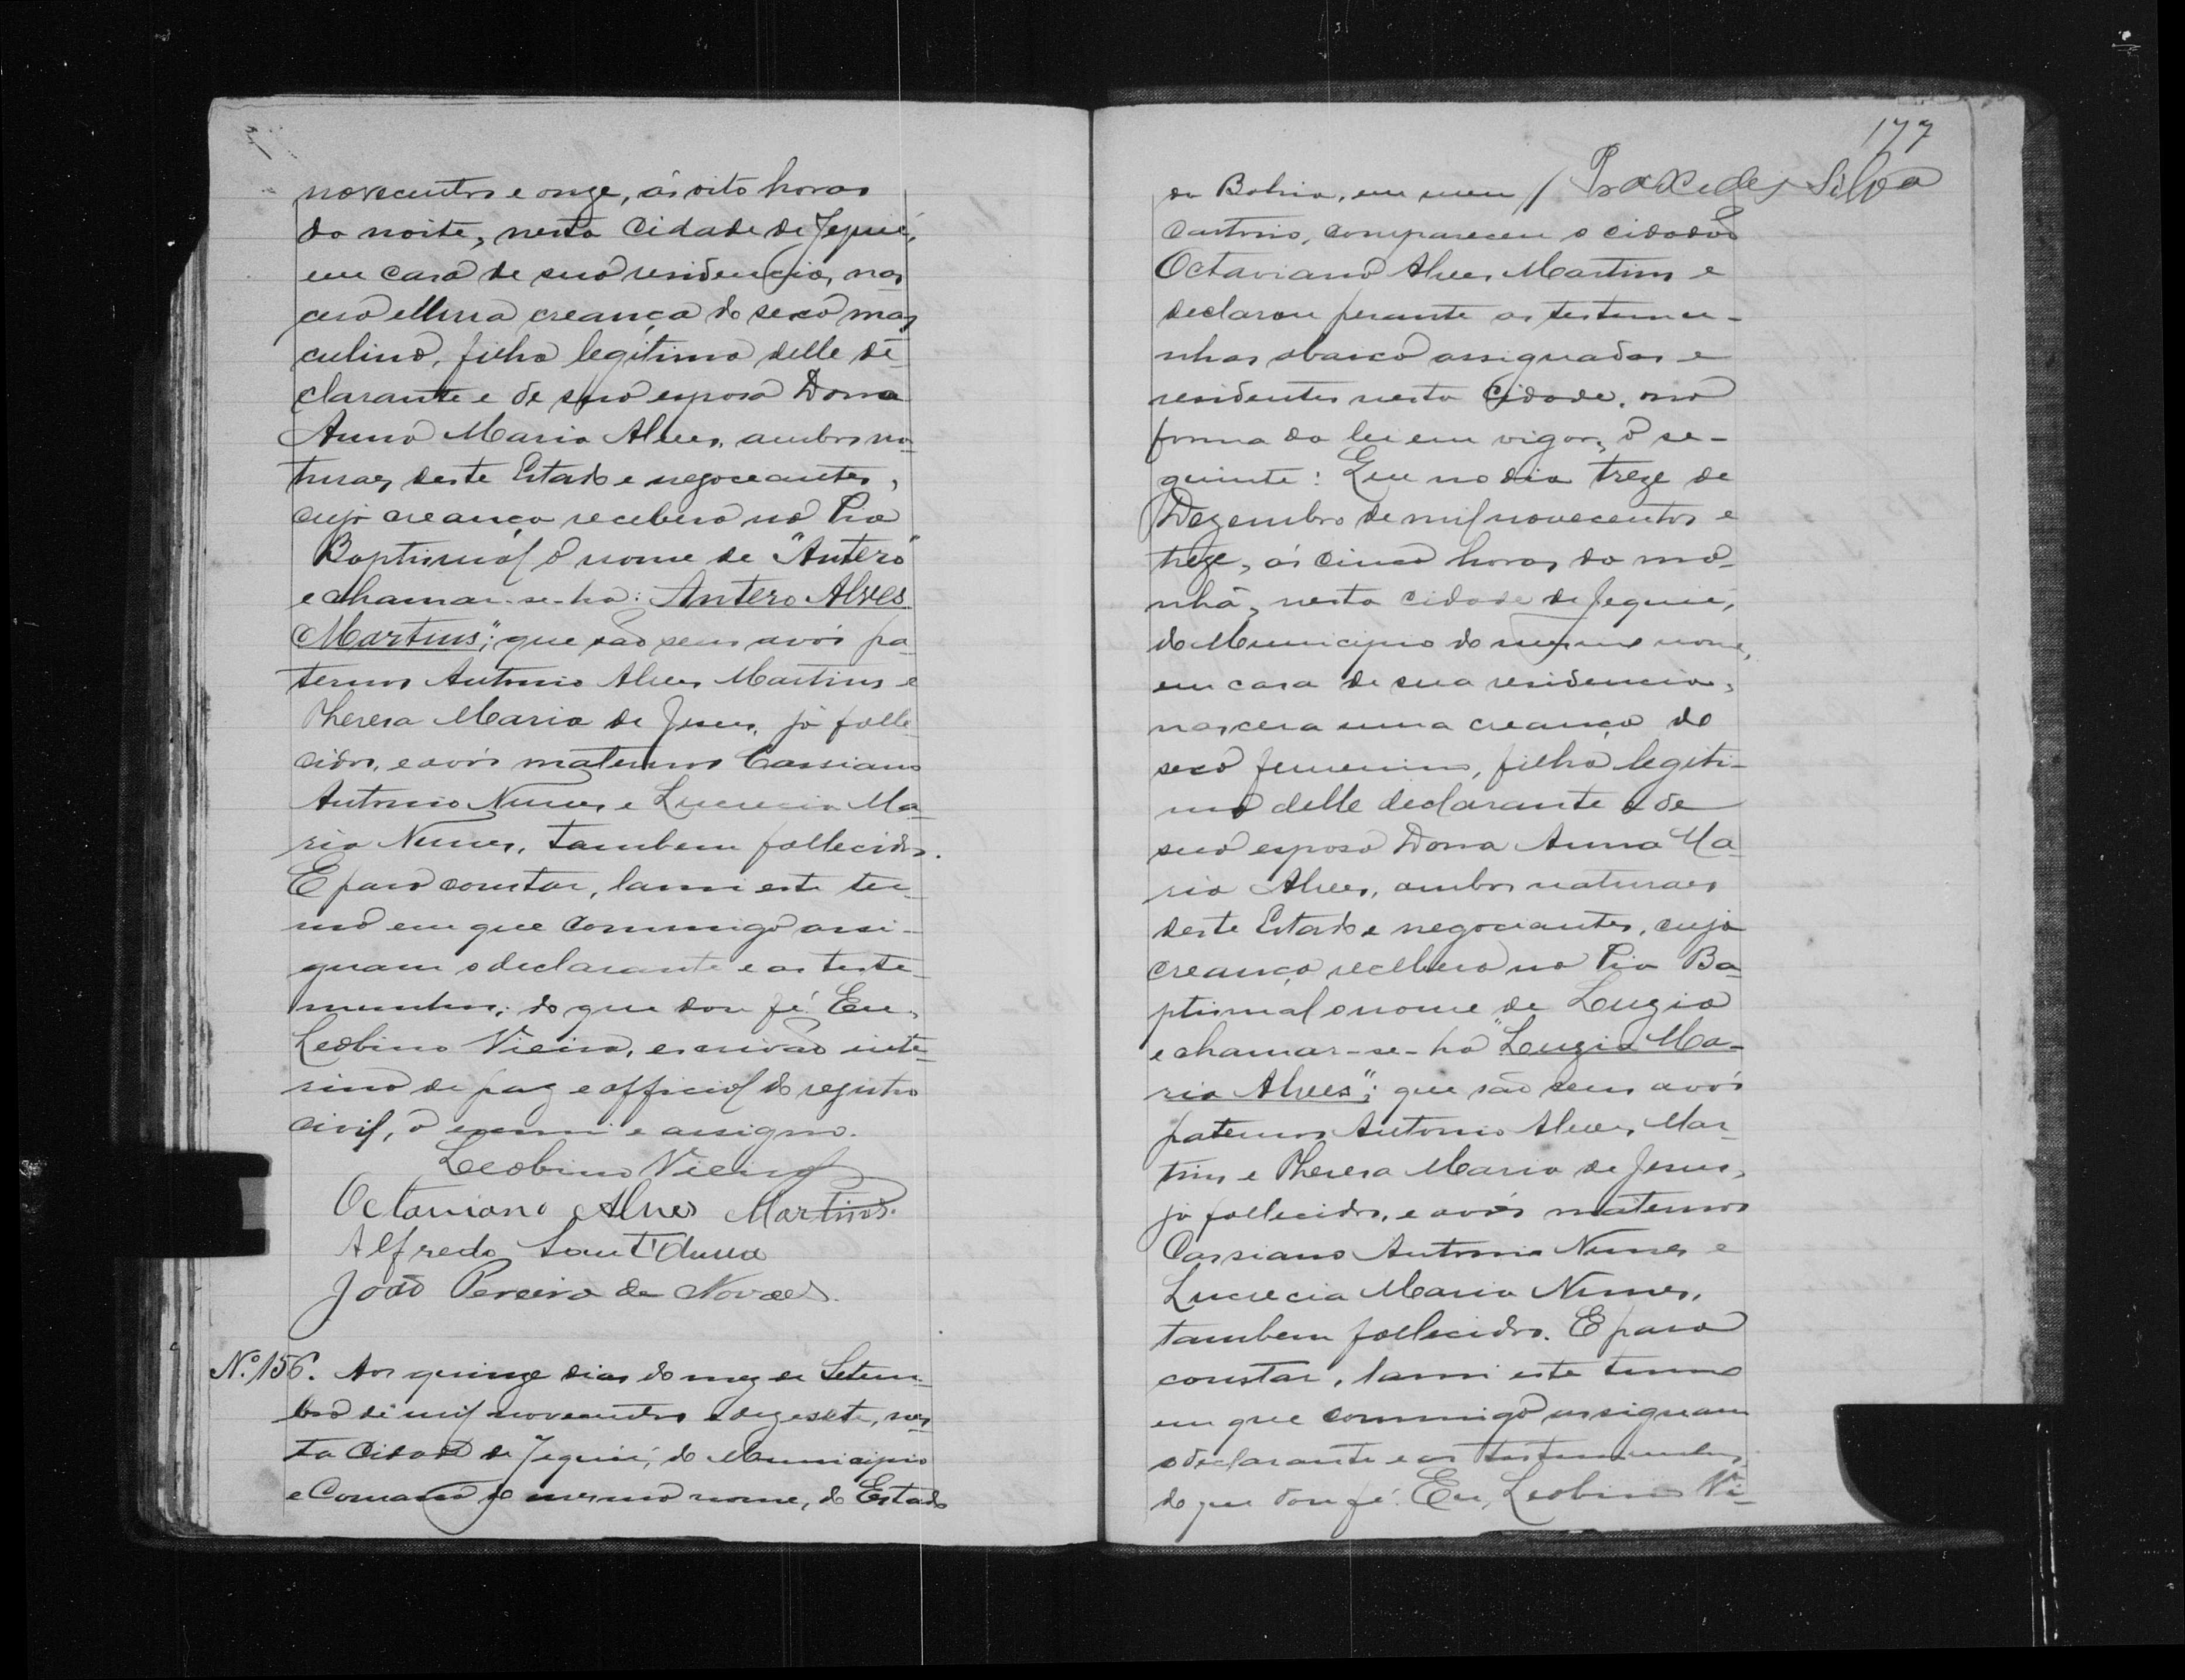 novecentos e onze, ás oito horas
da noite, nesta Cidade de Jequié,
em casa de sua residencia, nas
cera uma creança do sexo mas
culino, filho legitimo delle de-
clarante e de sua esposa Dona
Anna Maria Alves, ambos na-
turaes deste Estado e negoceantes,
cuja creança receberá na Pia
Baptismal o nome de "Antero"
e chamar-se-ha: Antero Alves
Martins"; que são seus avós pa-
ternos Antonio Alves Martins e
Thereza Maria de Jesus, já falle-
cidos, e avós maternos Cassiano
Antonio Nunes e Lucrecia Ma-
ria Nunes, tambem fallecidos.
E para constar, lavrei este ter-
mo em que commigo assi-
gnam o declarante e as teste-
munhas; do que dou fé. Eu,
Leobino Vieira, escrivão inte-
rino de paz e official do registro
civil, o escrevi e assigno.
Leobino Vieira
Octaviano Alves Martins.
Alfredo Sant'Anna
João Pereira de Novaes.
Nº 156. Aos quinze dias do mez de Setem-
bro de mil novecentos e dezesete, nes-
ta Cidade de Jequié, do Municipio
e Comarca do mesmo nome, do Estado
177
da Bahia, em meu / Praxedes Silva
Cartorio, compareceu o cidadão
Octaviano Alves Martins e
declarou perante as testemu-
nhas abaixo assignadas e
residentes nesta Cidade, na
forma da lei em vigor, o se-
guinte: Que no dia treze de
Dezembro de mil novecentos e
treze, ás cinco horas da ma-
nhã, nesta cidade de Jequié,
do Municipio do mesmo nome,
em casa de sua residencia,
nascera uma creança do
sexo femenino, filha legiti-
ma delle declarante e de
sua esposa Dona Anna Ma-
ria Alves, ambos naturaes
deste Estado e negociantes, cuja
creança receberá na Pia Ba-
ptismal o nome de Luzia
e chamar-se-ha "Luzia Ma-
ria Alves"; que são seus avós
paternos Antonio Alves Mar-
tins e Thereza Maria de Jesus,
já fallecidos, e avós maternos
Cassiano Antonio Nunes e
Lucrecia Maria Nunes,
tambem fallecidos. E para
constar, lavrei este termo
em que commigo assignam
o declarante e as testemunhas,
do que dou fé. Eu, Leobino Vi-